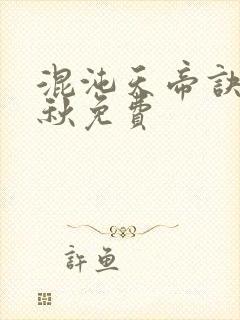 混沌天帝訣
秋免費
許魚